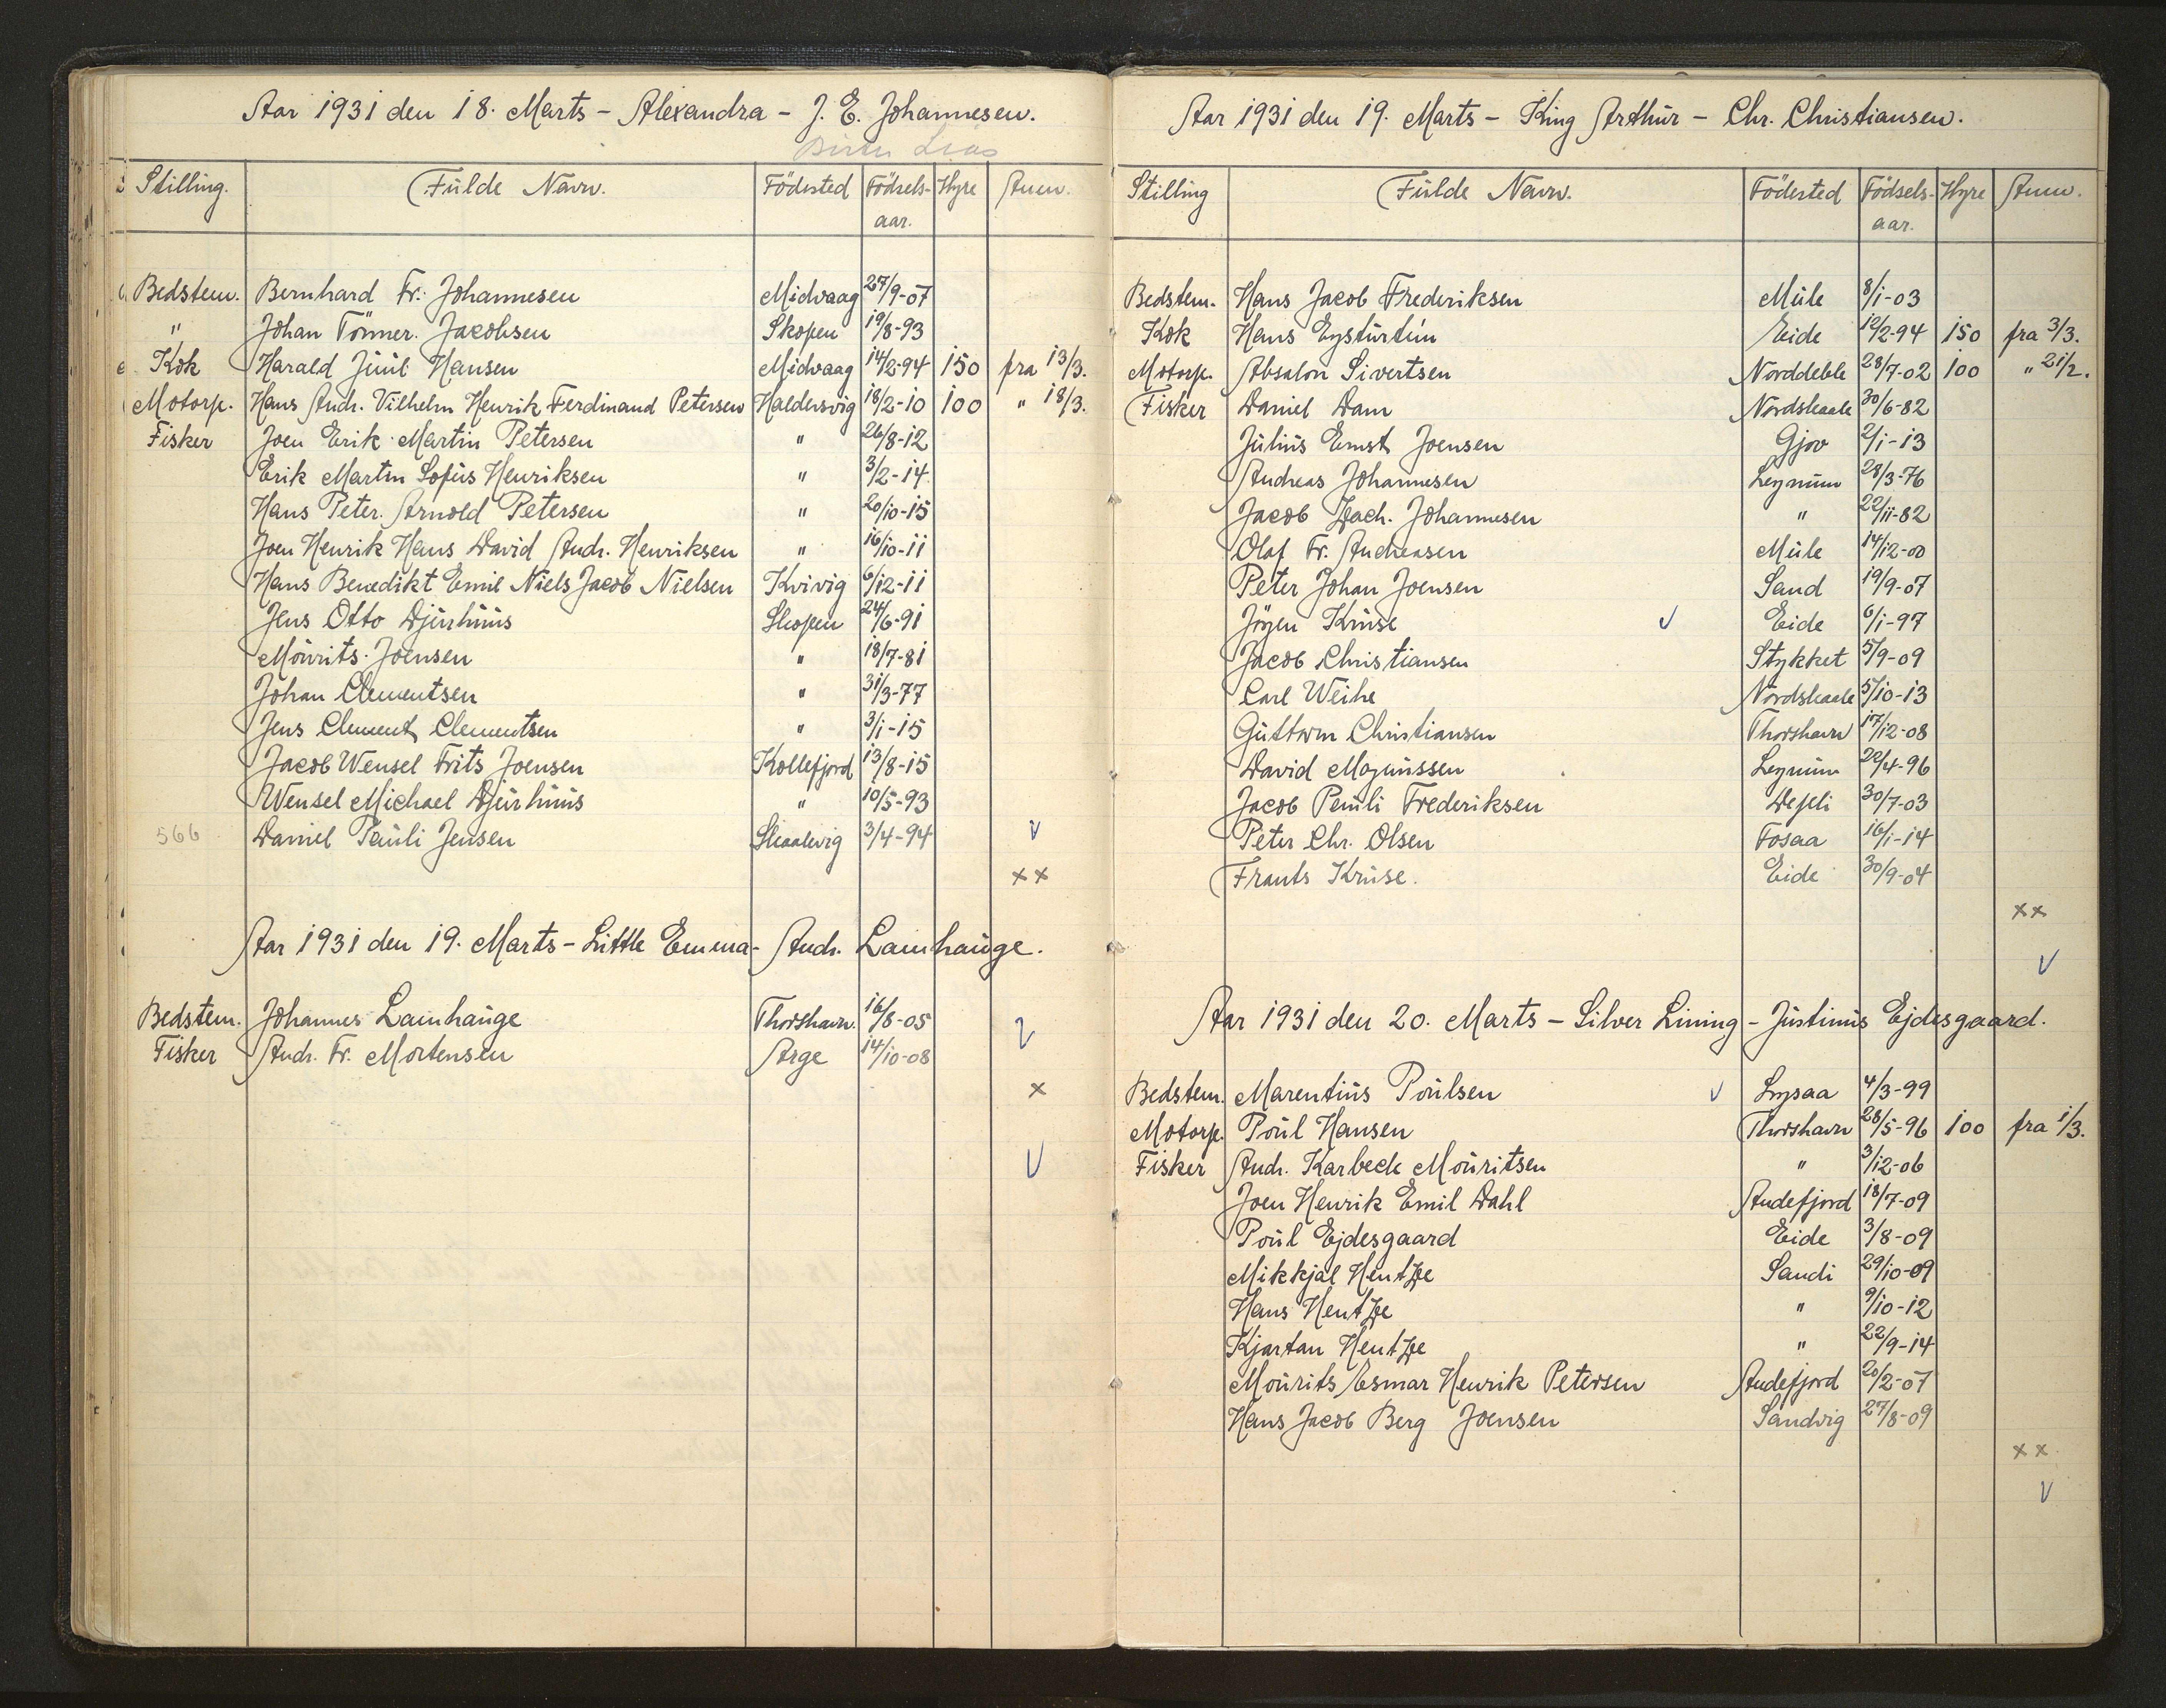 Aar 1931 den 18. Marts - Alexandra - J. E. Johannesen.
Stilling. Fulde Navn. Födested Födsels-aar. Hyre Anm.
Bedstem. Bernhard Fr. Johannesen Midvaag 27/9-07
" Johan Tönner. Jacobsen Skopen 19/8-93
Kok Harald Juul Hansen Midvaag 14/2-94 150 fra 13/3.
Motorp. Hans Andr. Vilhelm Henrik Ferdinand Petersen Haldersvig 18/2-10 100 " 18/3.
Fisker Joen Erik Martin Petersen " 26/8-12
Erik Martin Sofus Henriksen " 3/2-14
Hans Peter Arnold Petersen " 20/10-15
Joen Henrik Hans David Andr. Henriksen " 16/10-11
Hans Benedikt Emil Niels Jacob Nielsen Kvivig 6/12-11
Jens Otto Djurhuus Skopen 24/6-91
Mourits Joensen " 18/7-81
Johan Clementsen " 31/3-77
Jens Clement Clementsen " 3/1-15
Jacob Wensel Frits Joensen Kollefjord 13/8-15
Wensel Michael Djurhuus " 10/5-93
566 Daniel Pauli Jensen Skaalevig 3/4-94 v
xx
Aar 1931 den 19. Marts - Little Emma - Andr. Lamhauge.
Bedstem. Johannes Lamhauge Thorshavn. 16/8-05
Fisker Andr. Fr. Mortensen Arge 14/10-08
x
v
Aar 1931 den 19. Marts - King Arthur - Chr. Christiansen.
Stilling Fulde Navn. Födested Födsels-aar. Hyre Anm.
Bedstem. Hans Jacob Frederiksen Mule 8/1-03
Kok Hans Eysturtun Eide 12/2-94 150 fra 3/3.
Motorp. Absalon Sivertsen Norddeble 28/7-02 100 " 21/2.
Fisker Daniel Dam Nordskaale 30/6-82
Julius Ernst Joensen Gjov 2/1-13
Andreas Johannesen Leynum 28/3-76
Jacob Zach. Johannesen " 22/11-82
Olaf Fr. Andreasen Mule 14/12-00
Peter Johan Joensen Sand 19/9-07
Jögen Kruse v Eide 6/1-97
Jacob Christiansen Stykket 5/9-09
Carl Weihe Nordskaale 5/10-13
Guttorm Christiansen Thorshavn 17/12-08
David Magnussen Leynum 22/4-96
Jacob Pauli Frederiksen Depli 30/7-03
Peter Chr. Olsen Fosaa 16/1-14
Frants Kruse. Eide 30/9-04
xx
v
Aar 1931 den 20. Marts - Silver Lining - Justinus Ejdesgaard.
Bedstem. Marentius Poulsen v Lopsaa 4/3-99
Motorp. Poul Hansen Thorshavn 28/5-96 100 fra 1/3.
Fisker Andr. Karbech Mouritsen " 3/12-06
Joen Henrik Emil Dahl Andefjord 18/7-09
Poul Ejdesgaard Eide 3/8-09
Mikkjal Hentze Sandi 29/10-09
Hans Hentze " 9/10-12
Kjartan Hentze " 22/9-14
Mourits Esmar Henrik Petersen Andefjord 20/2-07
Hans Jacob Berg Joensen Sandvig 27/8-09
xx
v